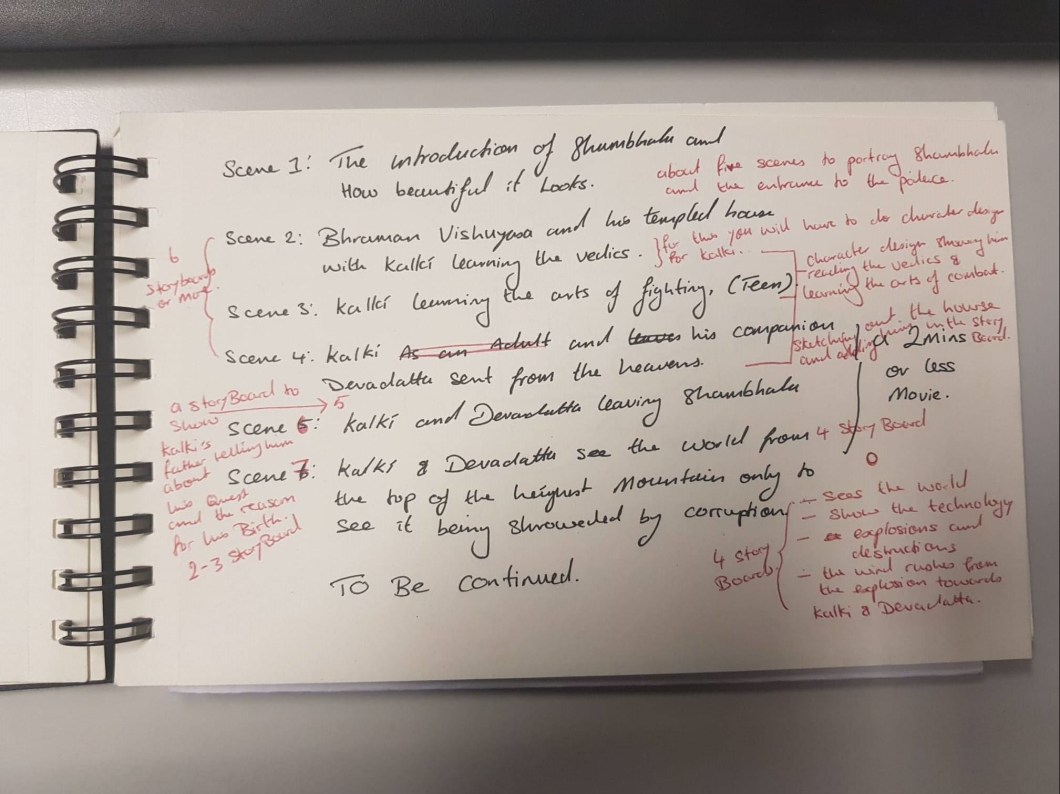 Scene 1: The introduction of Shambhala and
How beautiful it Looks.
about five scenes to portray Shambhala
and the entrance to the palace.
Scene 2: Bhraman Vishuyasa and his templed house
with Kalki learning the vedics.
}for this you will have to do charater design
for Kalki.
character design showing him
reading the vedics &
learning the arts of combat.
6
Storyboards
or more.
Scene 3: Kalki learning the arts of fighting. (Teen)
Scene 4: Kalki As an Adult and his companion
Devadatta sent from the heavens.
Sketching out the hourse
and adding him with the story
Board.
a 2mins
or less
Movie.
a StoryBoard to
Show
Kalki's
father telling him
about
his Quest
and the reason
for his Birth.
2-3 StoryBoard
5
Scene 6: Kalki and Devadatta leaving Shambhala
4 Story Board
Scene 7: Kalki & Devadatta see the world from
the top of the heighest Mountain only to
see it being Shroweded by corruption
4 Story
Boards.
- Sees the world
- Show the technology
- explosions and
destructions
- the wind rushes from
the explosion towards
Kalki & Devadatta.
TO BE Continued.